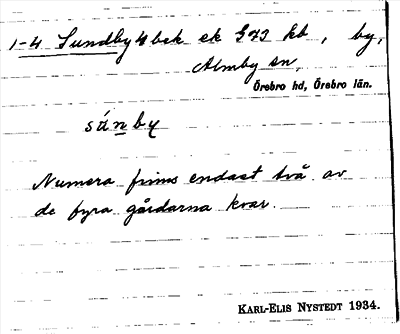 1-4 Sundby 4 bek ek 573 kb, by,
Almby sn,
Örebro hd, Örebro län.
sůnby
Numera finns endast två av
de fyra gårdarna kvar.
KARL-ELIS NYSTEDT 1934.